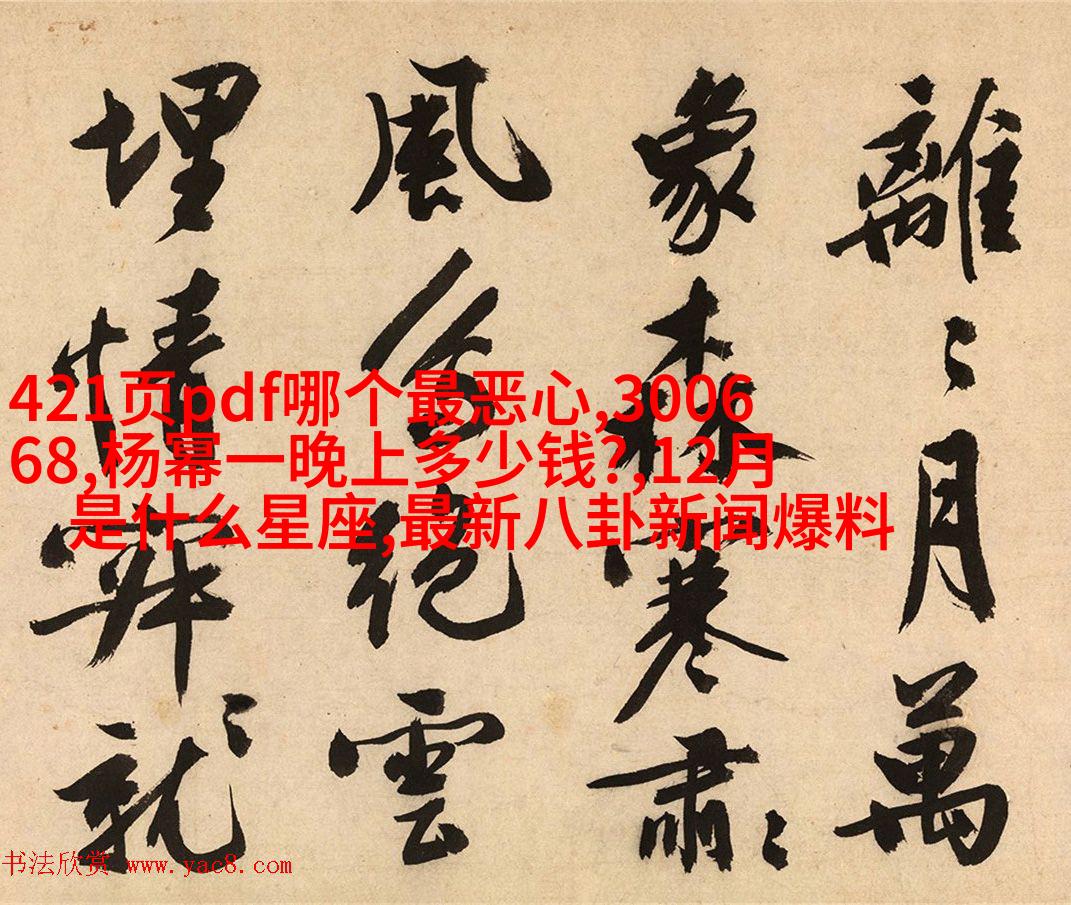 離〻月萬
象森寒肅〻
風絶雲
埋情就
421页pdf哪个最恶心,3006
68,杨幂一晚上多少钱?,12月
是什么星座,最新八卦新闻爆料
书法欣赏 www.yac8.com